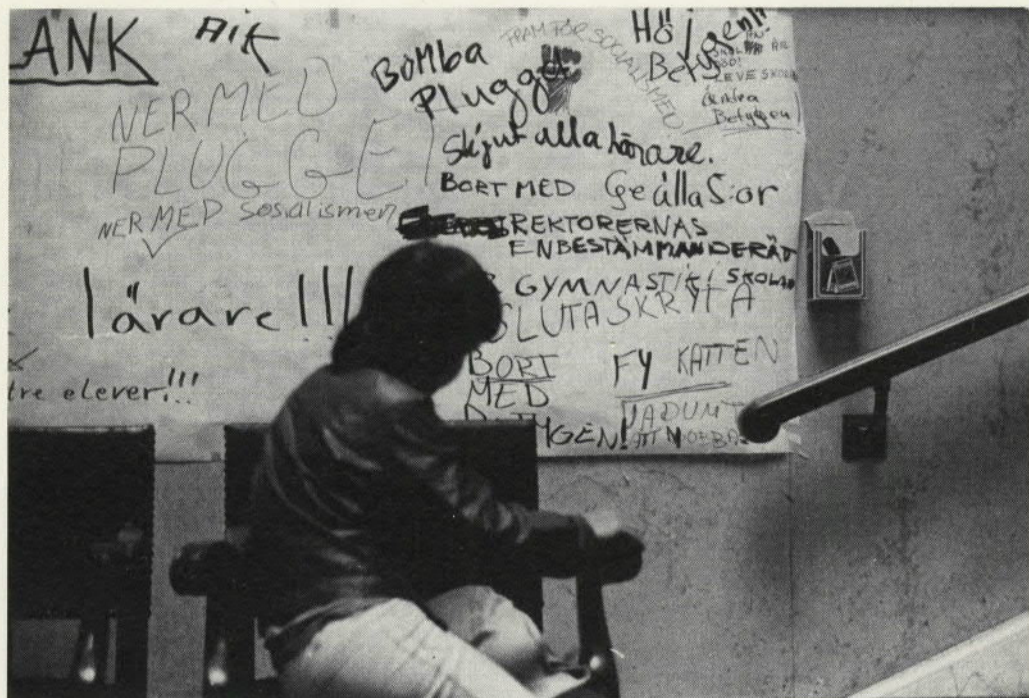 ANK AIK
NER MED
PLUGGET
NER MED sosialismen
lärare !!!
tre elever!!!
BOMba
Plugget
FRAM FÖR SOCIALISMEN
Höj
Betygen!!
ÄR
LEVE SKOLAN
Betygen
Skjut alla lärare.
BORT MED Ge alla 5:or
REKTORERNAS
ENBESTÄMMANDERÄT
GYMNASTIK I SKOLAN
SLUTA SKRYTA
BORT
MED
BETYGEN!
FY KATTEN